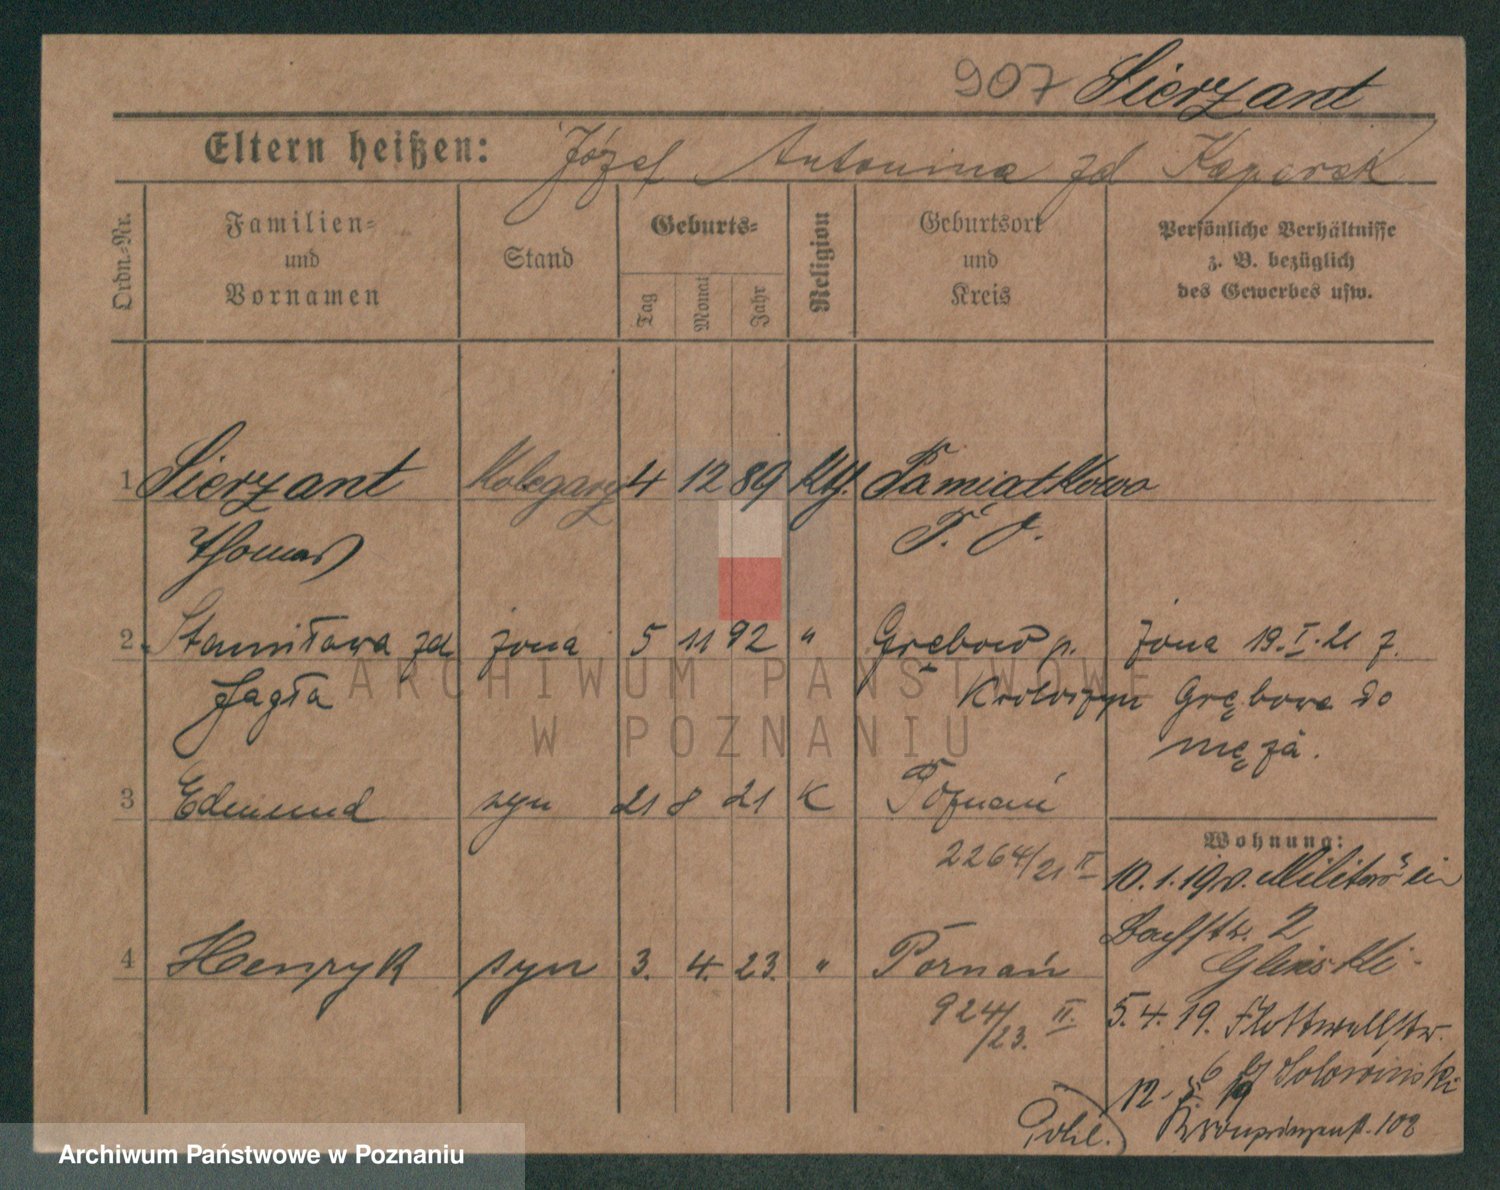 907 Sierzant
Eltern heißen: Józef Antonina zd Kaperak
Ordn.-Nr.
Familien-
und
Vornamen
Stand
Geburts-
Tag
Monat
Jahr
Religion
Geburtsort
und
Kreis
Persönliche Verhältnisse
z. B. bezüglich
des Gewerbes usw.
1 Sierzant 4 12 89 Kth. Pamiatkowo
Thomas
2 Stanisława zd żona 5 11 92 " Grębow p. żona 19.I.21 z
Jagła Krotoszyn Grębowa do
męża.
3 Edmund syn 21 8 21 K Poznań
2264/21 II
Wohnung:
10.1.19 v. Militär in
Bachstr. 2
Glinski
4 Henryk syn 3. 4. 23. " Poznań
924/23. II.
5.4.19. Flottwellstr.
6 Solowinski
12. 5. 19
Kronprinzenst. 108
ARCHIWUM PAŃSTWOWE
W POZNANIU
Archiwum Państwowe w Poznaniu